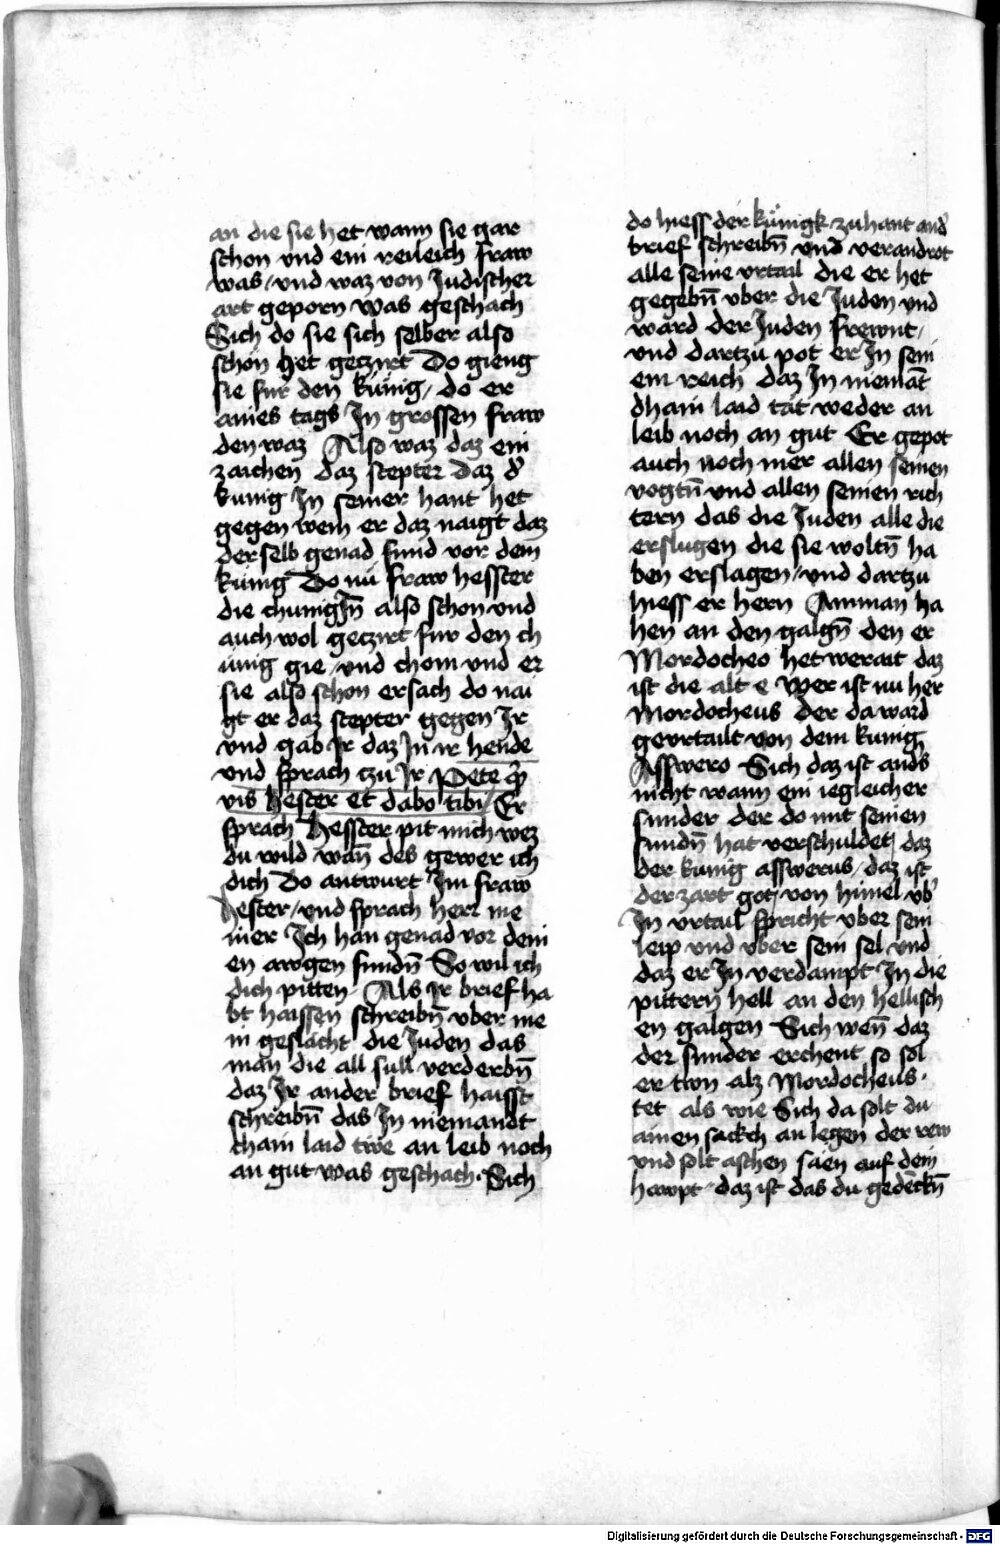 an die sie het wann sie gar
schon vnd ein reileich fraw
was / vnd waz von Judischer
art geporn Was geschach
Sich do sie sich selber also
schon het geczirt Do gieng
sie fur den kúnig / do er
aines tags In grossen fraw
den waz Also waz daz ein
zaichen daz scepter daz d'
kunig In seiner hant het
gegen wem er daz naigt daz
der selb genad fund vor dem
kúnig Do nú fraw hesster
die chunigĪn also schon vnd
auch wol geczirt fur den ch
únig gie / vnd chom vnd er
sie also schon ersach do nai
gt er daz scepter gegen Jr
vnd gab Jr daz In ir hende
vnd sprach czu Jr Pete
vis hester et dabo tibi / Er
sprach hesster pit mich wez
du wild wan̄ des gewer ich
dich Do antwurt Im fraw
hester / vnd sprach herr me
iner Ich han genad vor dein
en awgen fundn̄ So wil ich
dich pitten / Als Jr brief ha
bt haissen schreibn̄ vber me
in geslácht die Juden das
man die all sull verderbn̄
daz Jr ander brief haisst
schreibn̄ das In niemandt
chain laid twe an leib noch
an gut was geschach · Sich
do hiess der kúnigk zuhant and'
brief schreibn̄ vnd verandrot
alle seine vrtail die er het
gegebn̄ vber die Juden vnd
ward der Juden frewnt /
vnd dartzu pot er In sein
em reich daz In niemāt
dhain laid tát weder an
leib noch an gut Er gepot
auch noch mer allen seinen
vogtn̄ vnd allen seinen rich
tern das die Juden alle die
erslugen die sie woltn̄ ha
ben erslagen / vnd dartzu
hiess er hern Amman ha
hen an den galgn̄ den er
Mordocheo het werait daz
ist die alt e Wer ist nu her
Mordocheus der da ward
gevrtailt von dem kunig
Asswero Sich daz ist anders
nicht wann ein iegleicher
sunder der do mit seinen
sundn̄ hat verschuldet / daz
der kunig asswerus / daz ist
der zart got / von himel vb'
In vrtail spricht vber sein
leip vnd vber sein sel vnd
daz er In verdampt In die
pittern hell an den hellisch
en galgen Sich wen̄ daz
der sunder erchent so sol
er twn alz Mordocheus ·
tet als wie Sich da solt du
ainen sackch an legen der rew
vnd solt aschen saen auf dein
hawpt · daz ist das du gedēckn̄
Digitalisierung gefördert durch die Deutsche Forschungsgemeinschaft - DFG